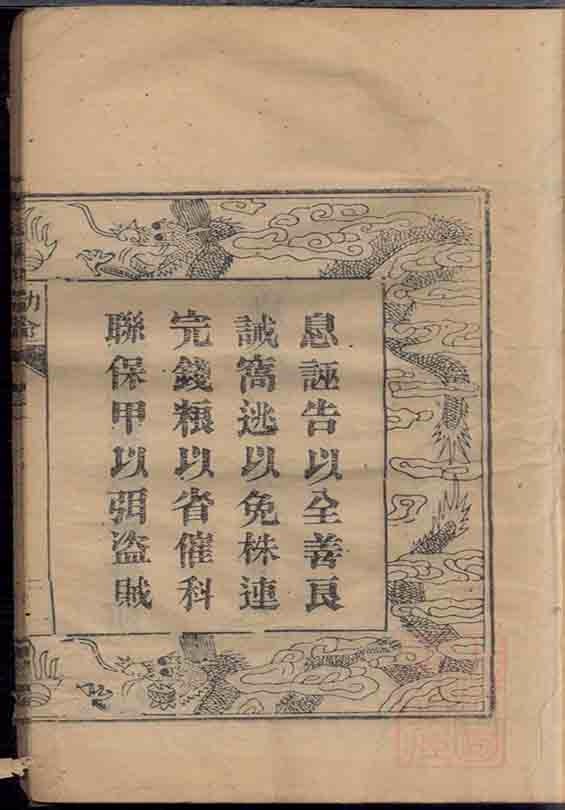 息誣告以全善良
誡窩逃以免株連
完錢粮以省催科
聯保甲以弭盜賊